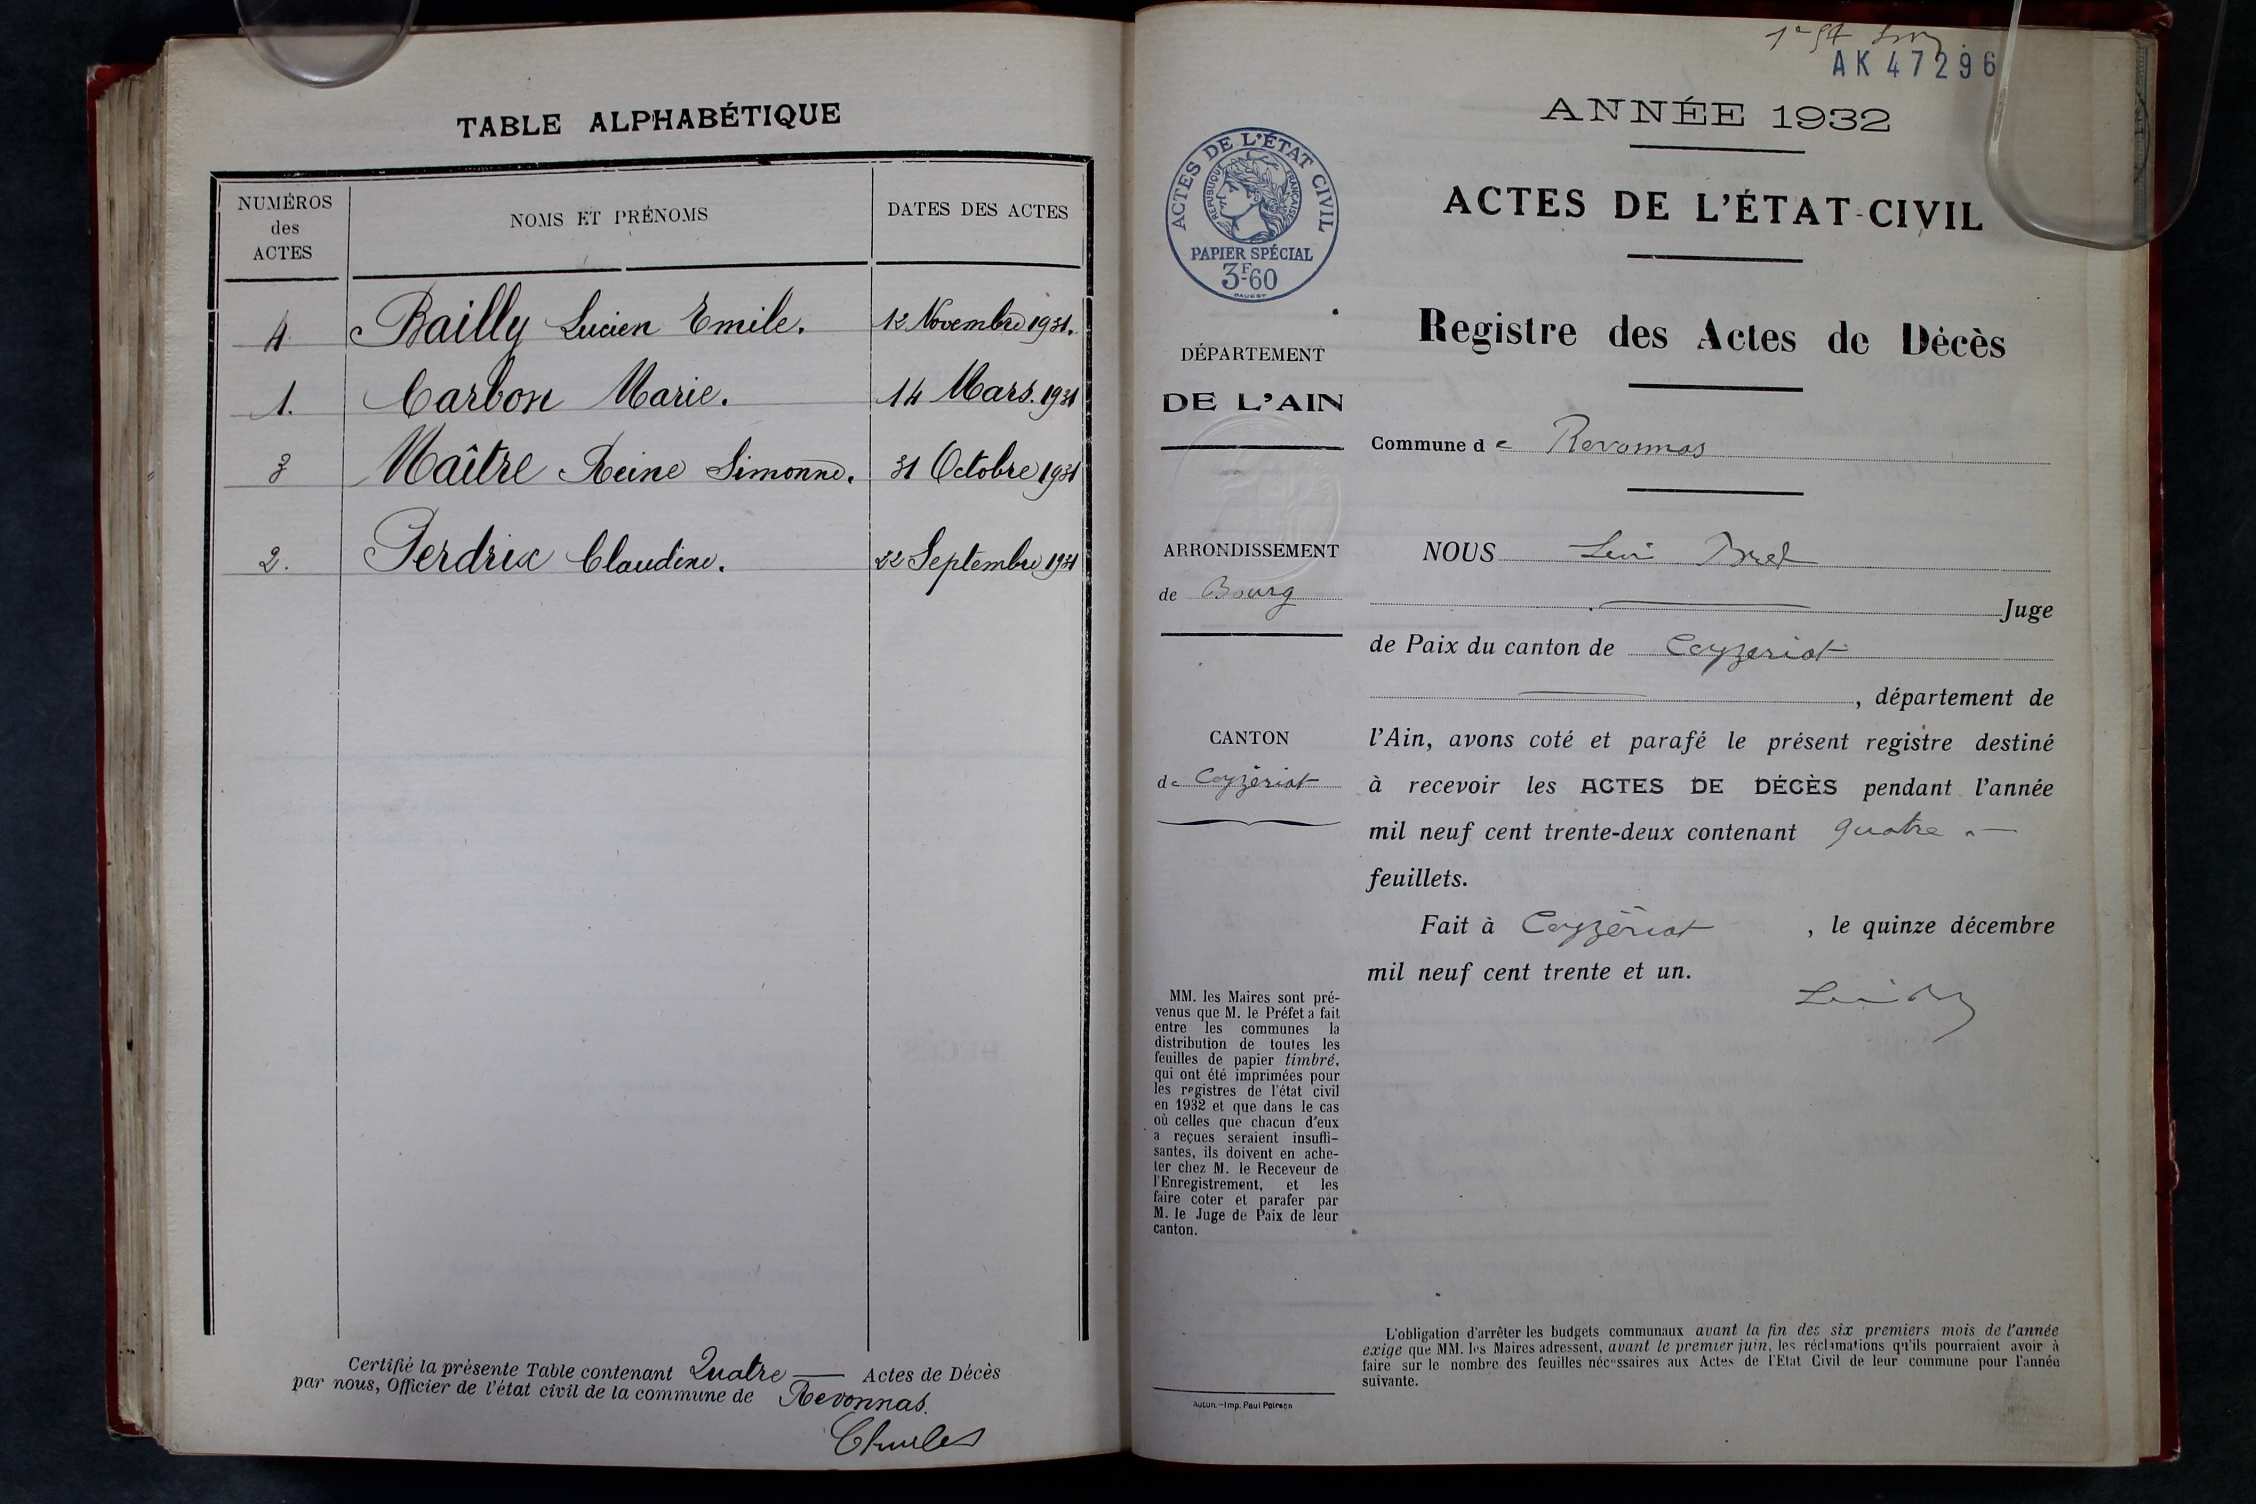 TABLE ALPHABÉTIQUE
NUMÉROS
des
ACTES
NOMS ET PRÉNOMS
DATES DES ACTES
4 Bailly Lucien Emile. 12 Novembre 1931.
1. Carbon Marie. 14 Mars. 1931
3 Maître Reine Simonne. 31 Octobre 1931
2. Perdrix Claudine. 22 Septembre 1931
Certifié la présente Table contenant Quatre Actes de Décès
par nous, Officier de l'état civil de la commune de Revonnas.
AK 47296
ANNÉE 1932
ACTES DE L'ÉTAT-CIVIL
PAPIER SPÉCIAL
3F60
RÉPUBLIQUE FRANÇAISE
ACTES DE L'ÉTAT-CIVIL
Registre des Actes de Décès
DÉPARTEMENT
DE L'AIN
Commune de Revonnas
ARRONDISSEMENT
de Bourg
CANTON
de Ceyzériat
NOUS Bret
Juge
de Paix du canton de Ceyzeriat
, département de
l'Ain, avons coté et parafé le présent registre destiné
à recevoir les ACTES DE DÉCÈS pendant l'année
mil neuf cent trente-deux contenant quatre
feuillets.
Fait à Ceyzériat , le quinze décembre
mil neuf cent trente et un.
MM. les Maires sont pré-
venus que M. le Préfet a fait
entre les communes la
distribution de toutes les
feuilles de papier timbré,
qui ont été imprimées pour
les registres de l'état civil
en 1932 et que dans le cas
où celles que chacun d'eux
a reçues seraient insuffi-
santes, ils doivent en ache-
ter chez M. le Receveur de
l'Enregistrement, et les
faire coter et parafer par
M. le Juge de Paix de leur
canton.
L'obligation d'arrêter les budgets communaux avant la fin des six premiers mois de l'année
exige que MM. les Maires adressent, avant le premier juin, les réclamations qu'ils pourraient avoir à
faire sur le nombre des feuilles nécessaires aux Actes de l'Etat Civil de leur commune pour l'année
suivante.
Autun.-Imp. Paul